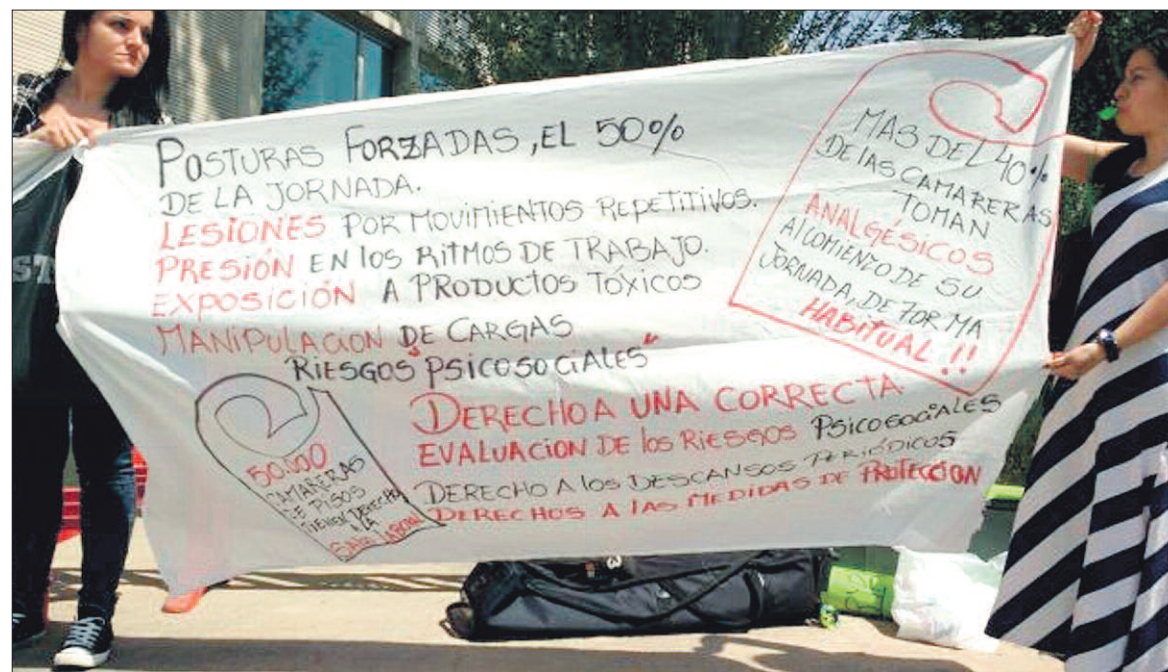 POSTURAS FORZADAS, EL 50%
DE LA JORNADA.
LESIONES POR MOVIMIENTOS REPETITIVOS.
PRESIÓN EN LOS RITMOS DE TRABAJO.
EXPOSICIÓN A PRODUCTOS TÓXICOS
MANIPULACION DE CARGAS
RIESGOS "PSICOSOCIALES"
MAS DEL 40%
DE LAS CAMARERAS
TOMAN
ANALGÉSICOS
AL COMIENZO DE SU
JORNADA, DE FORMA
HABITUAL !!
50.000
CAMARERAS
DE PISOS
TIENEN DERECHO
A LA
LABORAL
DERECHO A UNA CORRECTA
EVALUACION DE LOS RIESGOS PSICOSOCIALES
DERECHO A LOS DESCANSOS PERIÓDICOS
DERECHOS A LAS MEDIDAS DE PROTECCION
ST